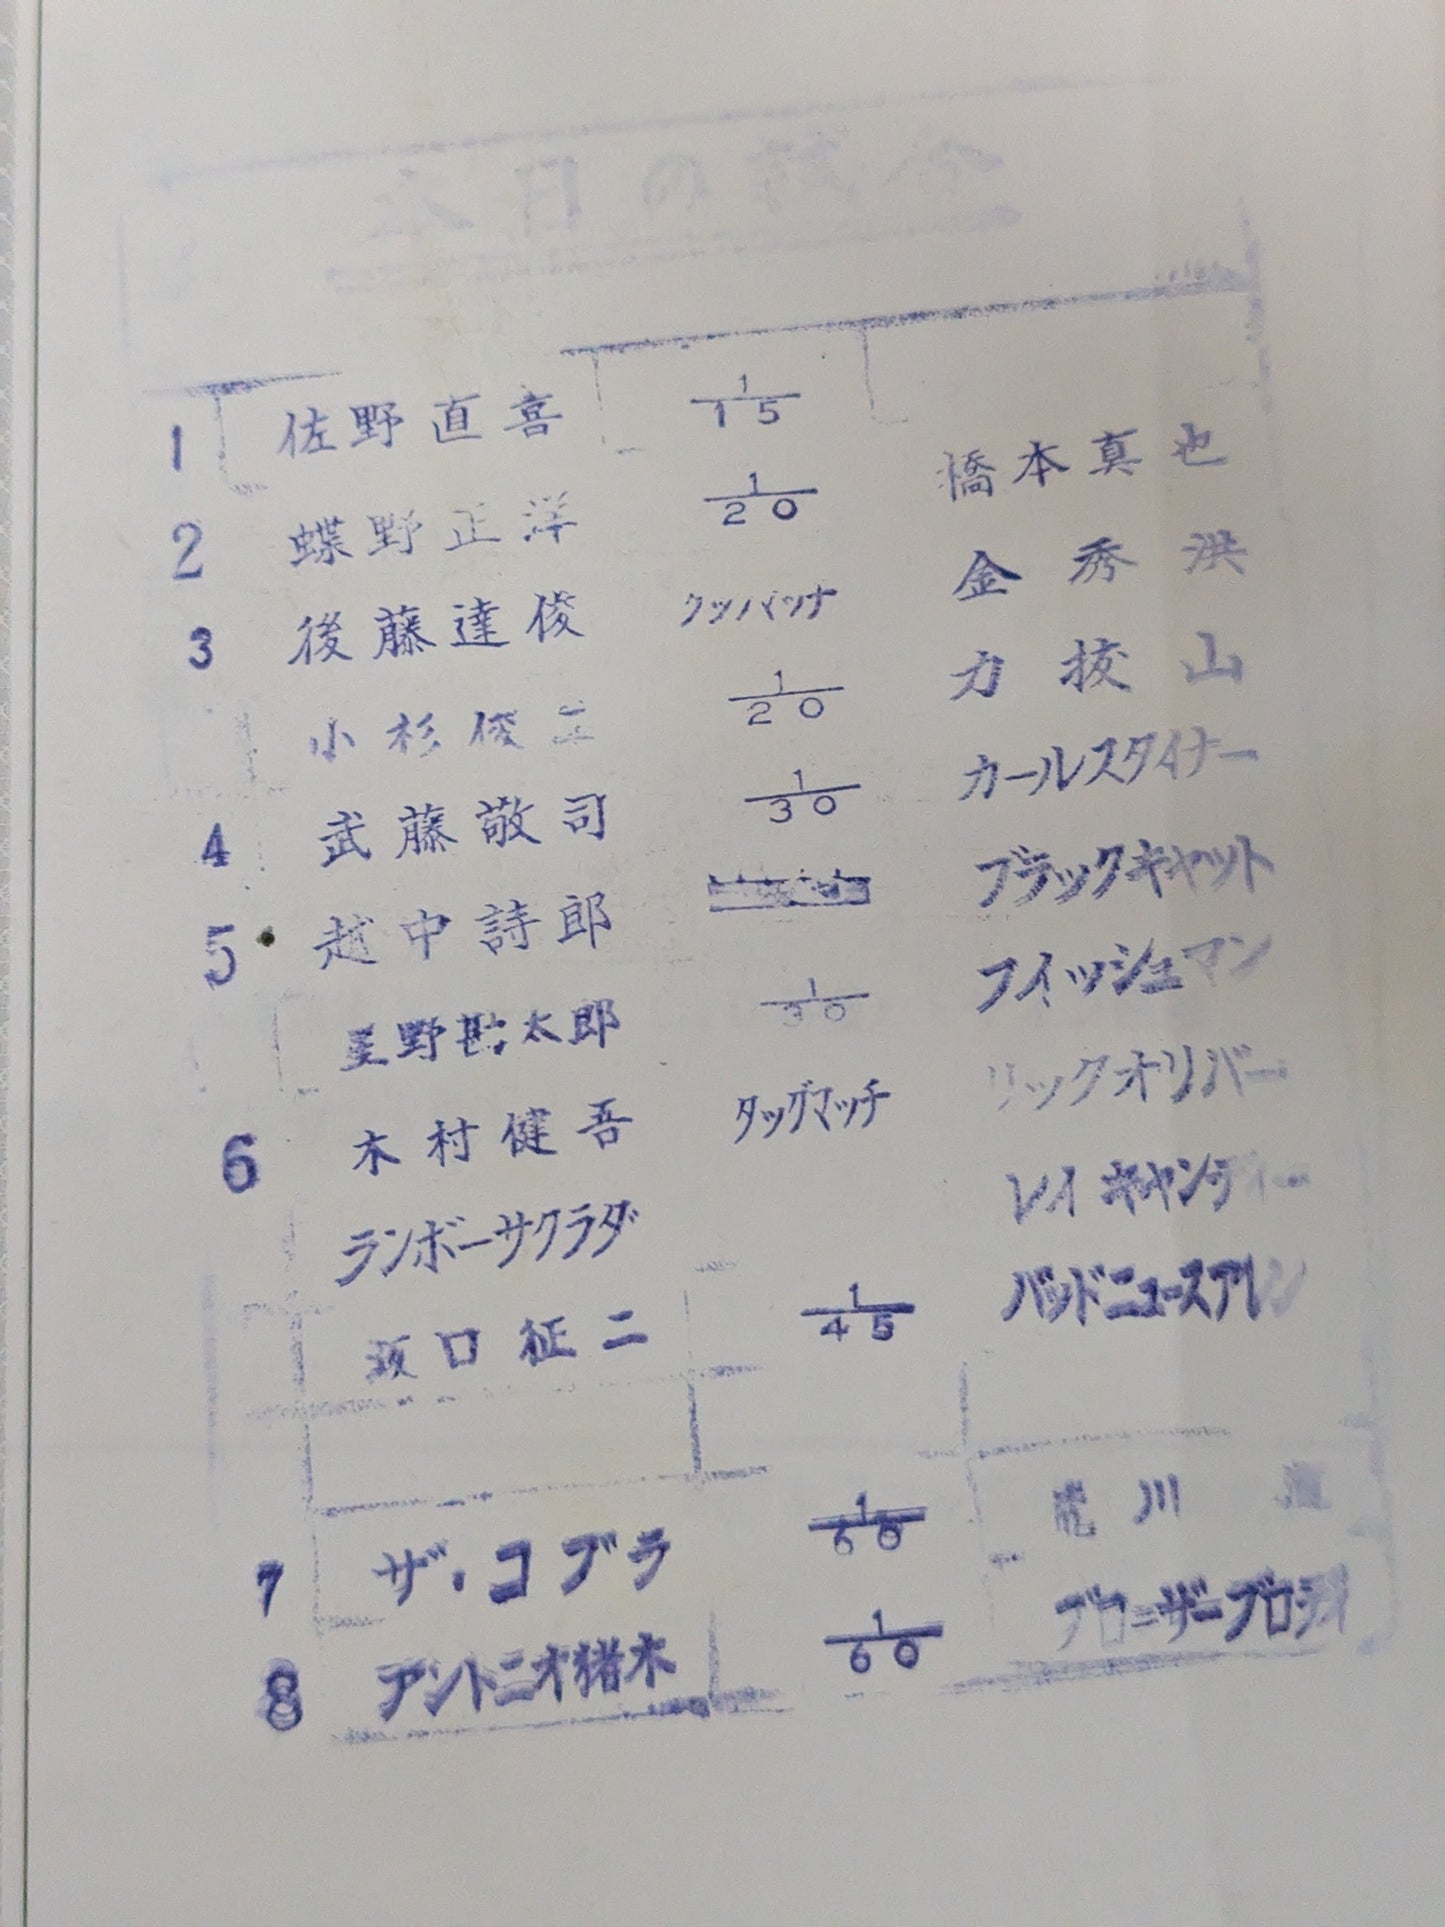 今揆の日左
1 佐野直喜 1/15 橋本真也
2 蝶野正洋 1/20 金秀洪
3 後藤達俊 タッグマッチ 力抜山
小杉俊二 1/20 カールスタイナー
4 武藤敬司 1/30 ブラックキャット
5 越中詩郎 フィッシュマン
星野勘太郎 1/30 リックオリバー
6 木村健吾 タッグマッチ レイキャンディー
ランボーサクラダ バッドニュースアレン
坂口征二 1/45
7 ザ・コブラ 1/60 荒川
8 アントニオ猪木 1/60 ブローザーブロディ